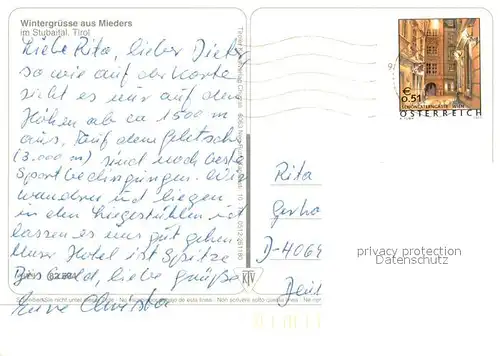 Wintergrüsse aus Mieders
im Stubaital, Tirol
Liebe Rita, lieber Dieter
so wie auf der Karte
sieht es nur auf den
Höhen ab ca 1500 m
aus, Auf dem Gletscher
(3.000 m) sind noch beste
Sportbedingungen. Wir
wandern und liegen
in den Liegestühlen und
lassen es uns gut gehen.
Unser Hotel ist Spitze
Bis bald, liebe Grüße
Eure Christa
€
0.51
WIEN
ÖSTERREICH
Rita
Gerha
D-4069
Deut
KTV
privacy protection
Datenschutz